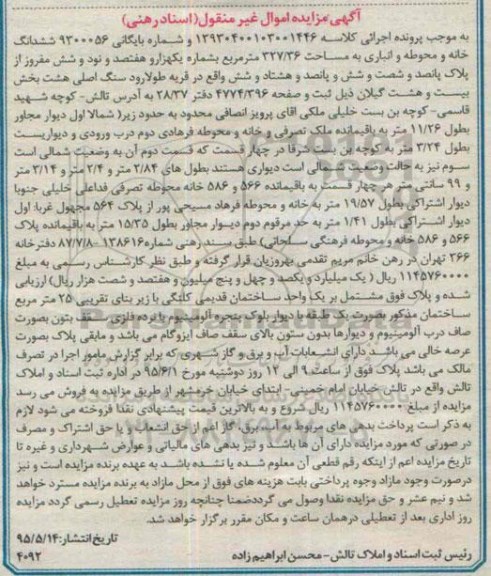 آگهی مزایده اموال غیر منقول(اسناد رهنی)
به موجب پرونده اجرائی کلاسه ۱۳۹۳۰۴۰۰۱۰۳۰۰۱۴۴۶ و شماره بایگانی ۹۳۰۰۰۵۶ ششدانگ
خانه و محوطه و انباری به مساحت ۳۲۷/۳۶ مترمربع بشماره یکهزارو هفتصد و نود و شش مفروز از
پلاک پانصد و شصت و شش و پانصد و هشتاد و شش واقع در قریه طولارود سنگ اصلی هشت بخش
بیست و هشت گیلان ذیل ثبت و صفحه ۴۷۷۴/۳۹۶ دفتر ۲۸/۳۷ به آدرس تالش- کوچه شهید
قاسمی- کوچه بن بست خلیلی ملکی آقای پرویز انصافی محدود به حدود زیر( شمالا اول دیوار مجاور
بطول ۱۱/۲۶ متر به باقیمانده ملک تصرفی و خانه و محوطه فرهادی دوم درب ورودی و دیواریست
بطول ۳/۲۴ متر به کوچه بن بست شرقا در چهار قسمت که قسمت دوم آن به وضعیت شمالی است
سوم نیز به حالت وضعیت شمالی است دیواری هستند بطول های ۲/۸۴ متر و ۲/۴ متر و ۳/۱۴ متر
و ۹۹ سانتی متر هر چهار قسمت به باقیمانده ۵۶۶ و ۵۸۶ خانه محوطه تصرفی فداعلی خلیلی جنوبا
دیوار اشتراکی بطول ۱۹/۵۷ متر به خانه و محوطه فرهاد مسیحی پور از پلاک ۵۶۴ مجهول غربا: اول
دیوار اشتراکی بطول ۱/۴۱ متر به حد مرقوم دوم دیوار مجاور بطول ۱۵/۳۵ متر به باقیمانده پلاک
۵۶۶ و ۵۸۶ خانه و محوطه فرهنگی سلحانی) طبق سند رهنی شماره۱۳۸۶۱۶-۸۷/۷/۸ دفترخانه
۳۶۶ تهران در رهن خانم مریم تقدمی بهروزیان قرار گرفته و طبق نظر کارشناس رسمی به مبلغ
۱۱۴۵۷۶۰۰۰۰ ریال ( یک میلیارد و یکصد و چهل و پنج میلیون و هفتصد و شصت هزار ریال) ارزیابی
شده و پلاک فوق مشتمل بر یک واحد ساختمان قدیمی کلنگی با زیر بنای تقریبی ۲۵ متر مربع
ساختمان مذکور بصورت یک طبقه با دیوار بلوک پنجره آلومینیوم با نرده فلزی سقف بتون بصورت
صاف درب آلومینیوم و دیوارها بدون ستون بالای سقف صاف ایزوگام می باشد و مابقی پلاک بصورت
عرصه خالی می باشد دارای انشعابات آب و برق و گاز شهری که برابر گزارش مامور اجرا در تصرف
مالک می باشد پلاک فوق از ساعت ۹ الی ۱۲ روز دوشنبه مورخ ۹۵/۶/۱ در اداره ثبت اسناد و املاک
تالش واقع در تالش خیابان امام خمینی- ابتدای خیابان خرمشهر از طریق مزایده به فروش می رسد
مزایده از مبلغ ۱۱۴۵۷۶۰۰۰۰ ریال شروع و به بالاترین قیمت پیشنهادی نقدا فروخته می شود لازم
به ذکر است پرداخت بدهی های مربوط به آب،برق، گاز اعم از حق انشعاب و یا حق اشتراک و مصرف
در صورتی که مورد مزایده دارای آن ها باشد و نیز بدهی های مالیاتی و عوارض شهرداری و غیره تا
تاریخ مزایده اعم از اینکه رقم قطعی آن معلوم شده یا نشده باشد به عهده برنده مزایده است و نیز
درصورت وجود مازاد وجوه پرداختی بابت هزینه های فوق از محل مازاد به برنده مزایده مسترد خواهد
شد و نیم عشر و حق مزایده نقدا وصول می گرددضمنا چنانچه روز مزایده تعطیل رسمی گردد مزایده
روز اداری بعد از تعطیلی درهمان ساعت و مکان مقرر برگزار خواهد شد.
تاریخ انتشار:۹۵/۵/۱۴
رئیس ثبت اسناد و املاک تالش- محسن ابراهیم زاده
۴۰۹۲